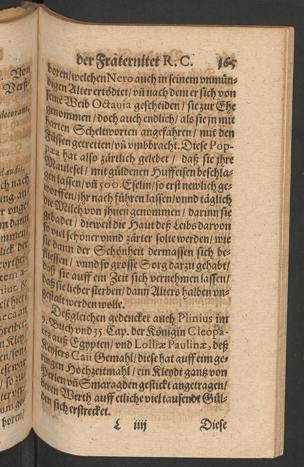 der Fraternitet R. C. 165
boren/welchen Nero auch in seinem vnmün-
digen Alter ertödtet/ vñ nach dem er sich von
seine Weib Octauia gescheiden/ sie zur Ehe
genommen/ doch auch endlich/ als sie jn mit
harten Scheltworten angefahren/ mit den
Füssen getretten/ vñ vmbbracht. Diese Pop-
pæa hat also zärtlich gelebet/ daß sie ihre
Maulesel/ mit güldenen Huffeisen beschla-
gen lassen/ vñ 500. Eselin/ so erst newlich ge-
worffen/ jhr nach führen lassen/ vnnd täglich
die Milch von jhnen genommen/ darinn sie
gebadet/ dieweil die Haut deß Leibs darvon
so viel schöner vnnd zärter solte werden/ wie
sie dann der Schönheit dermassen sich be-
flissen/ vnnd so grosse Sorg darzu gehabt/
daß sie auff ein Zeit sich vernehmen lassen/
daß sie lieber sterben/ dann Alters halben vn-
gestalt werden wolt.
Deßgleichen gedencket auch Plinius im
9. Buch vnd 35. Cap. der Königin Cleopa-
træ auß Egypten/ vnd Lolliæ Paulinæ, deß
Keysers Caii Gemahl/ diese hat auff eim ge-
ringen Hochzeitmahl/ ein Kleydt gantz von
Perlen vñ Smaragden gestickt angetragen/
deren Werth auff etliche viel tausendt Gül-
den sich erstrecket.
L iiij Diese